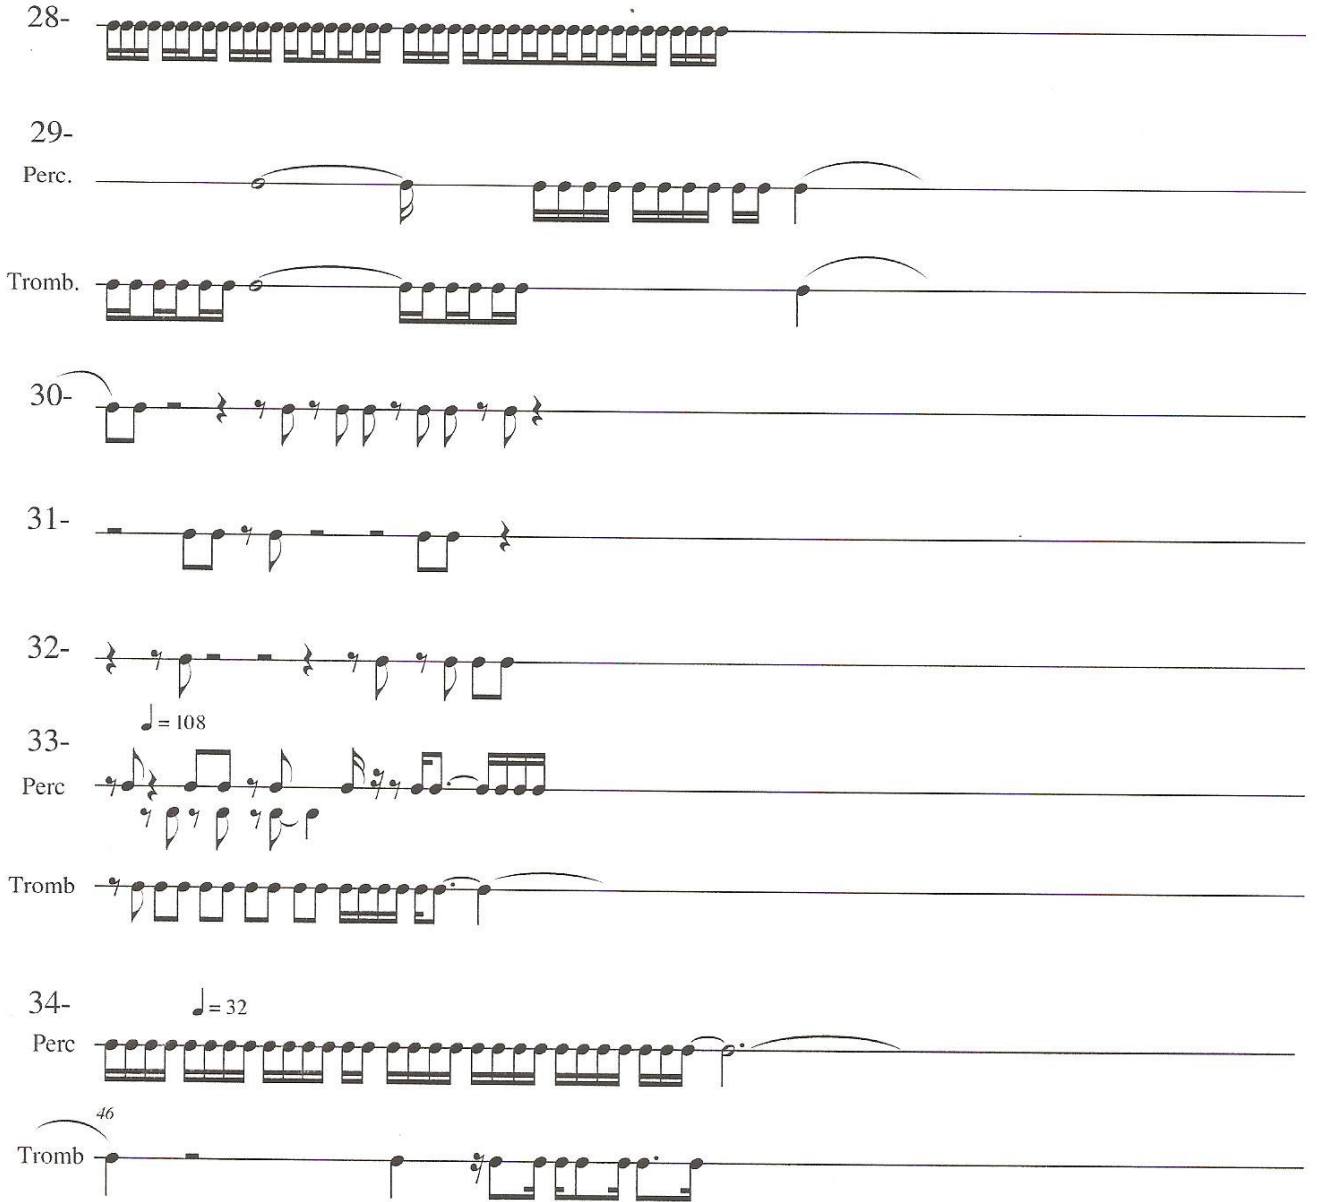 28-
29-
Perc.
Tromb.
30-
31-
32-
= 108
33-
Perc
Tromb
34-
= 32
Perc
46
Tromb